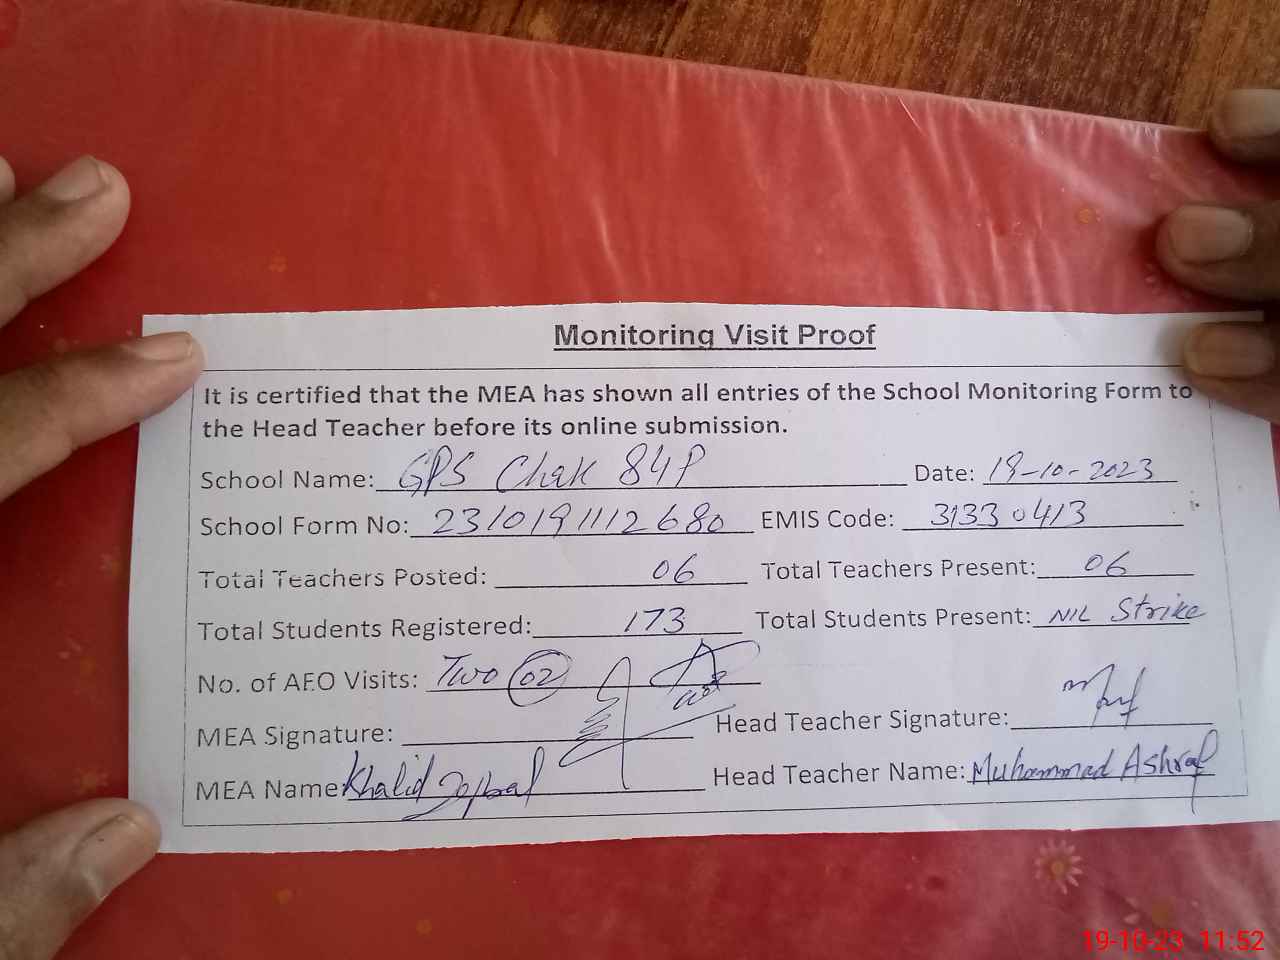 Monitoring Visit Proof
It is certified that the MEA has shown all entries of the School Monitoring Form to
the Head Teacher before its online submission.
School Name: GPS Chak 84P Date: 19-10-2023
School Form No: 2310191112680 EMIS Code: 31330413
Total Teachers Posted: 06 Total Teachers Present: 06
Total Students Registered: 173 Total Students Present: NIL Strike
No. of AEO Visits: Two 02
MEA Signature: Head Teacher Signature:
MEA Name Khalid Iqbal Head Teacher Name: Muhammad Ashraf
19-10-23 11:52